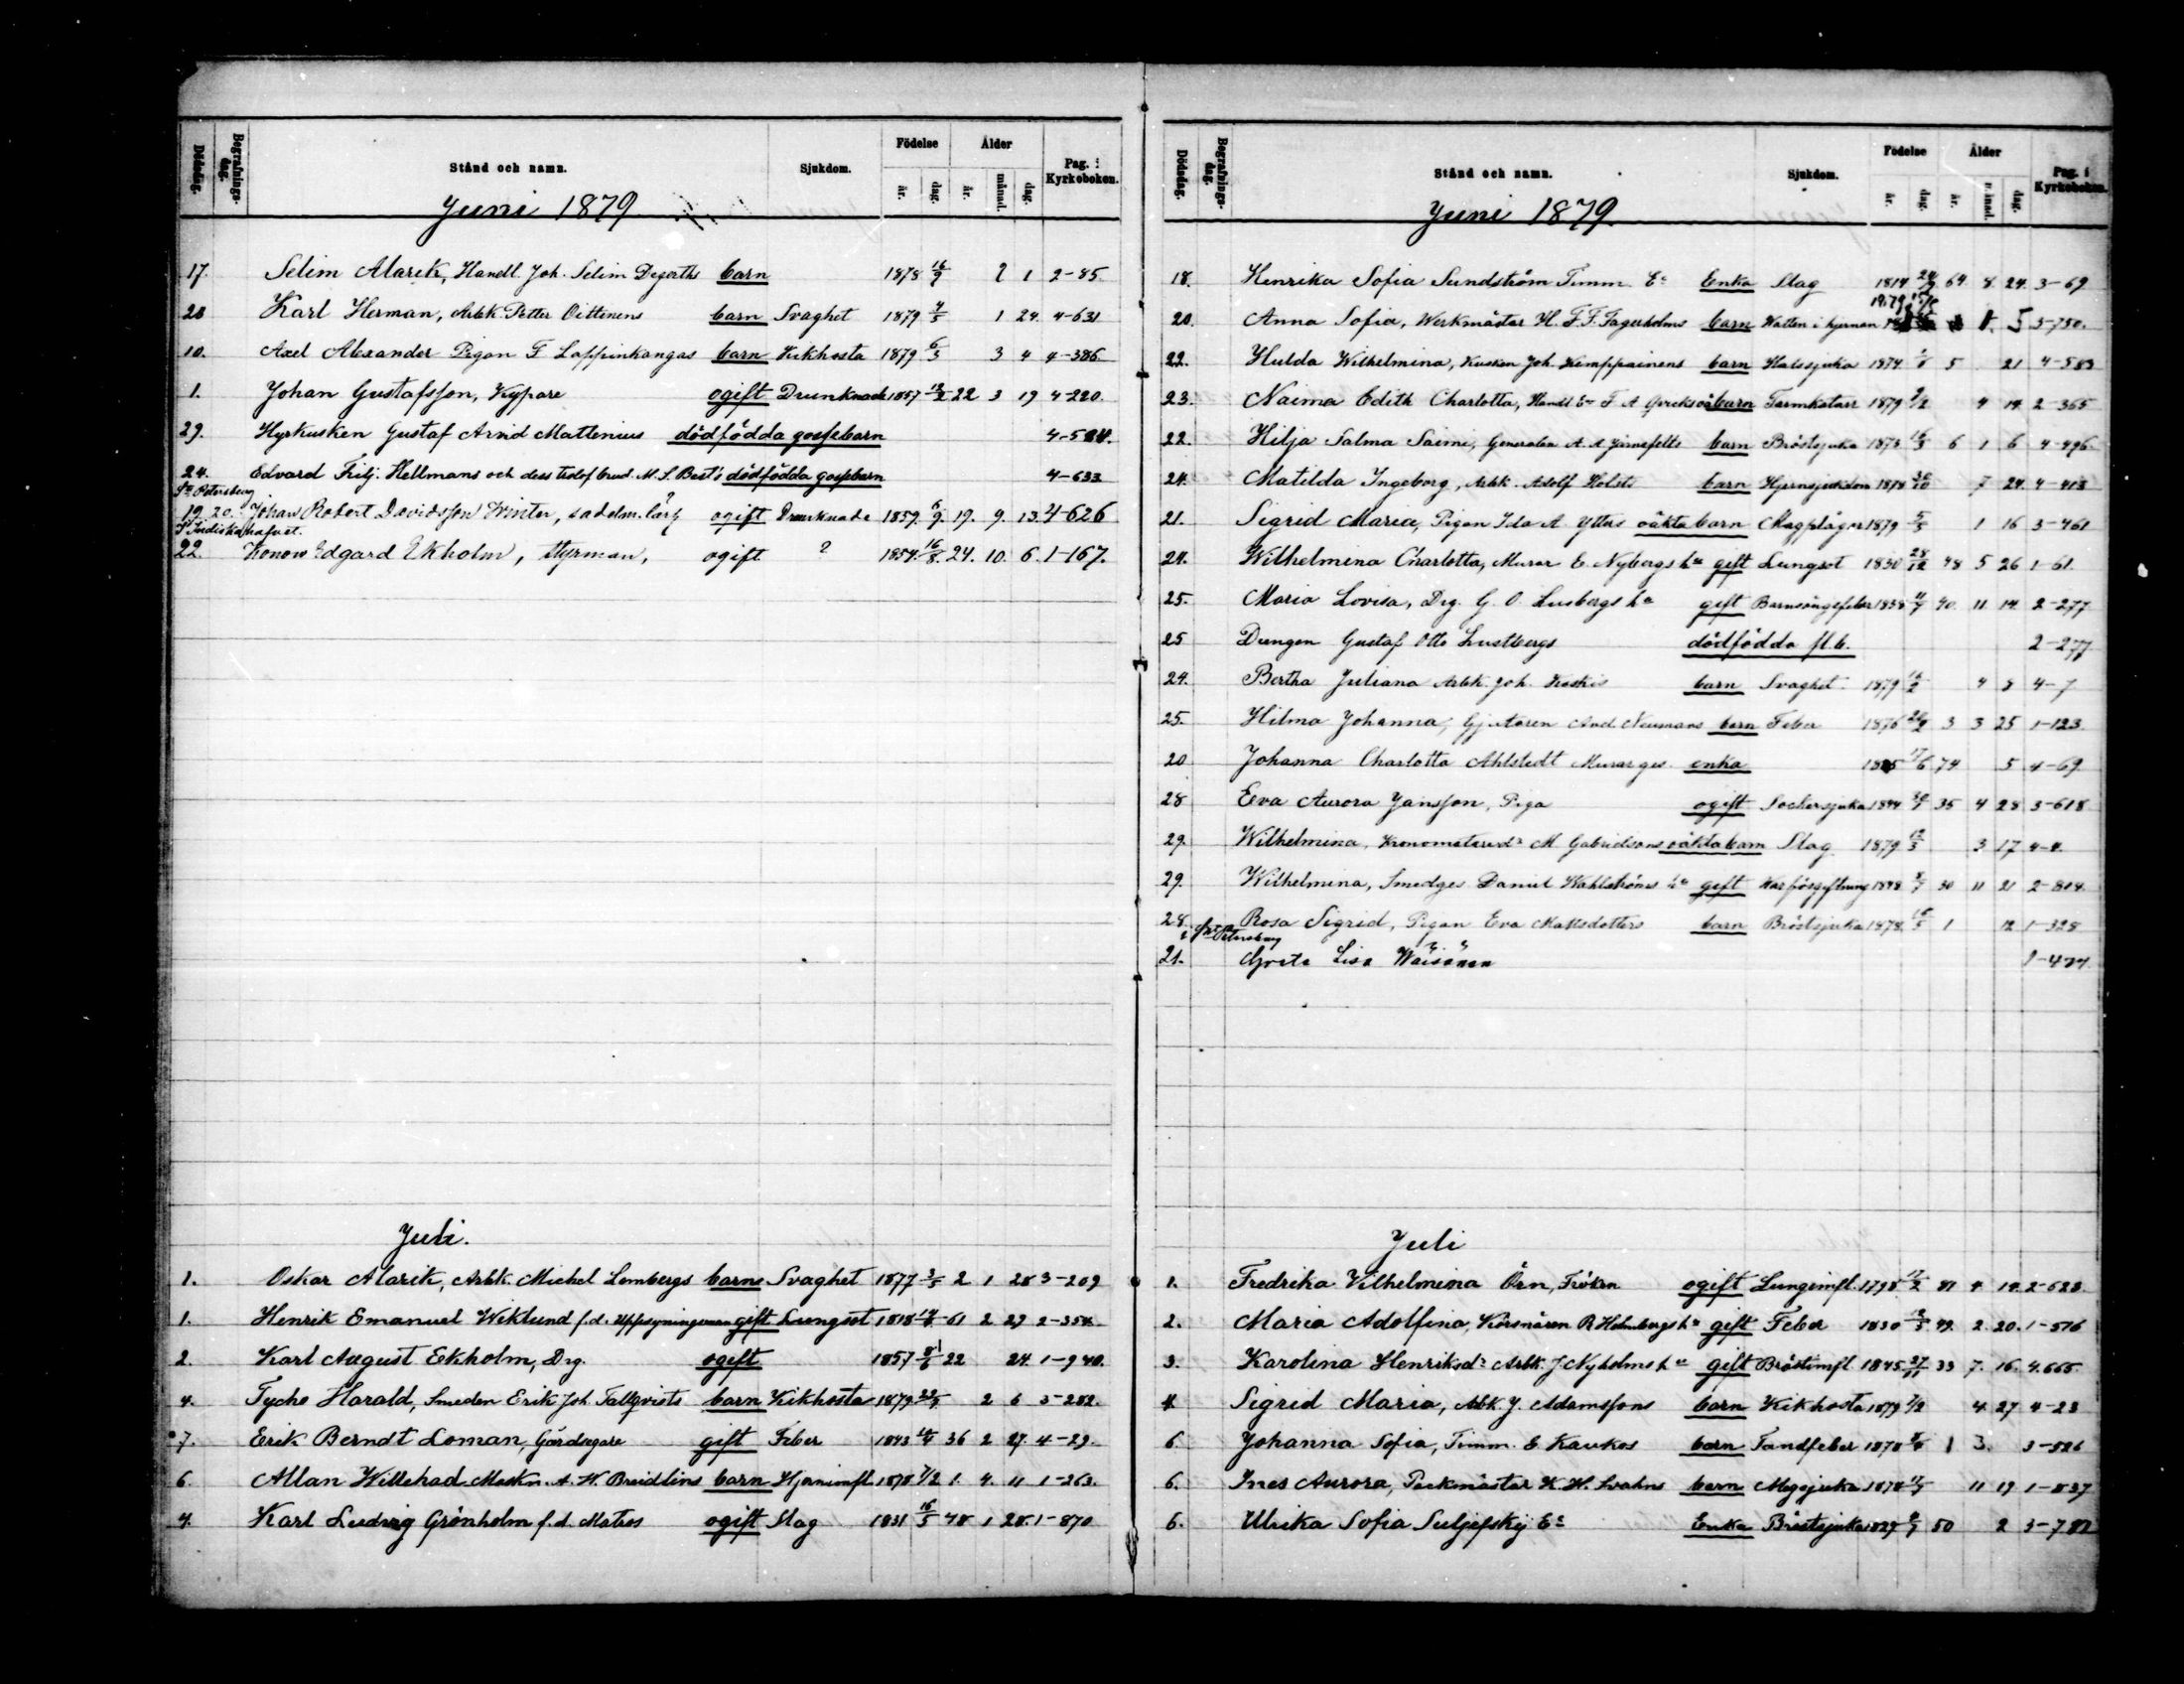 Dödsdag. Begrafnings-dag. Stånd och namn. Sjukdom. Födelse Ålder Pag. i Kyrkoboken.
år. dag. år. månad. dag.
Juni 1879
17. Selim Alarik, Handl. Joh. Selim Degerths barn 1878 16/9 2 1 2-85
28 Karl Herman, Arbk. Petter Oittinens barn Svaghet 1879 4/5 1 24. 4-631
10. Axel Alexander Pigan F Lappinkangas barn Kikhosta 1879 6/3 3 4 4-386
1. Johan Gustafsson, Kypare ogift Drunknade 1857 12/2 22 3 19 4-220
29. Hyrkusken Gustaf Arvid Mattenius dödfödda gossebarn 4-524.
24. Edvard Filij. Hellmans och dess trolof. brud. M. S. Best's dödfödda gossebarn 4-633
St Petersburg
19. 20. Johan Robert Davidsson Winter, sadelm. lärl ? ogift Drunknade 1859. 6/9. 19. 9. 13. 4-626
I Indiska hafvet.
22. Konow Edgard Ekholm, styrman, ogift ? 1854. 16/8. 24. 10. 6. 1-167.
Juli.
1. Oskar Alarik, Arbk. Michel Lembergs barn Svaghet 1877 3/5 2 1 28 3-209
1. Henrik Emanuel Wiklund f.d. Uppsyningsman gift Lungsot 1818 61 2 29 2-354.
2. Karl August Ekholm, Drg. ogift 1857 22 24. 1-940.
4. Tycho Harald, Smeden Erik Joh. Tallqvists barn Kikhosta 1879 2 6 3-282.
7. Erik Berndt Loman, Gårdsegare gift Feber 1843 36 2 27. 4-29.
6. Allan Willehad Maskn. A. W. Breidlins barn Hjerninfl 1878 7/2 1. 4. 11 1-263.
4. Karl Ludvig Grönholm f.d. Matros ogift Slag 1831 16/5 48 1 28. 1-870
Dödsdag. Begrafnings-dag. Stånd och namn. Sjukdom. Födelse Ålder Pag. i Kyrkoboken.
år. dag. år. månad. dag.
Juni 1879
18. Henrika Sofia Sundström Timm. Ea Enka Slag 1814 24/9 64 8. 24. 3-69
20. Anna Sofia, Werkmästar H. F. F. Fagerholms barn Watten i hjernan 1879 1. 5 3-750.
22. Hulda Wilhelmina, Kusken Joh. Kemppainens barn Halssjuka 1874 5 21 4-583
23. Naima Edith Charlotta, Handl. Ea F A barn Tarmkatarr 1879 2/2 4 14 2-365
22. Hilja Salma Saimi, Generalen A. A Järnefelts barn Bröstsjuka 1873 16/5 6 1 6 4-496.
24. Matilda Ingeborg, Arbk. Adolf Holsti barn Hjernsjukdom 1878 30/10 7 24. 4-413
21. Sigrid Maria, Pigan Ida A. Yttus oäkta barn Magplågor 1879 5/5 1 16 3-461
24. Wilhelmina Charlotta, Murar E. Nybergs hu gift Lungsot 1830 28/12 48 5 26 1-61.
25. Maria Lovisa, Drg. G. O. Lusbergs hu gift Barnsängsfeber 1838 11/7 40. 11. 14. 2-277
25 Dungen Gustaf Otto Lustbergs dödfödda fl.b. 2-277
24. Bertha Juliana Arbk. Joh. Koskis barn Svaghet. 1879 16/2 4 8 4-7
25. Hilma Johanna, Gjutaren And. Neumans barn Feber 1876 3 3 25 1-123.
20 Johanna Charlotta Ahlstedt Murarges. enka 1805 17/6 74 5 4-69
28 Eva Aurora Jansson, Piga ogift Sockersjuka 1844 30/1 35 4 28 3-618
29. Wilhelmina, Kronomatrosd:r M Gabrielsons oäkta barn Slag 1879 12/3 3 17 4-4.
29. Wilhelmina, Smedges. Daniel Wahlströms hu gift Warförgiftning 1848 8/7 30 11 21 2-804.
28. Rosa Sigrid, Pigan Eva Mattsdotters barn Bröstsjuka 1878 16/5 1 12 1-328
i St Petersburg
21. Greta Lisa Wäisänen 1-477
Juli
1. Fredrika Wilhelmina Örn, Fröken ogift Lunginfl. 1798 17/2 81 4 14. 2-628
2. Maria Adolfina, Körsnären R Holmbergs hu gift Feber 1830 12/5 49. 2. 20. 1-516
3. Karolina Henriksd:r Arbk. J. Nyholms hu gift Bröstinfl. 1845 27/11 33 7. 16. 4.665.
4. Sigrid Maria, Arbk. J. Adamssons barn Kikhosta 1879 7/2 4. 27 4-23
6. Johanna Sofia, Timm. E. Kaukos barn Tandfeber 1878 1 3. 3-526
6. Ines Aurora, Packmästar K. H. Svahns barn Magsjuka 1878 17/7 11 19 1-837
6. Ulrika Sofia Suljefskij Ea Enka Bröstsjuka 1829 4/7 50 2 3-782